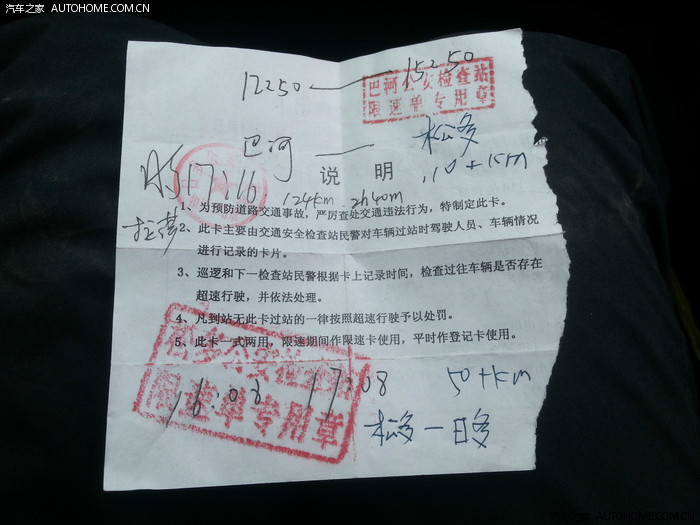 汽车之家 AUTOHOME.COM.CN
12250 — 15250
巴河公安检查站
限速单专用章
巴河 — 松多
说 明
17:16 124km 2h40m 110+km
1、为预防道路交通事故，严厉查处交通违法行为，特制定此卡。
2、此卡主要由交通安全检查站民警对车辆过站时驾驶人员、车辆情况
进行记录的卡片。
3、巡逻和下一检查站民警根据卡上记录时间，检查过往车辆是否存在
超速行驶，并依法处理。
4、凡到站无此卡过站的一律按照超速行驶予以处罚。
5、此卡一式两用，限速期间作限速卡使用，平时作登记卡使用。
松多公安检查站
限速单专用章
16:08 17:08 50+km
松多一日多
AUTOHOME.COM.CN